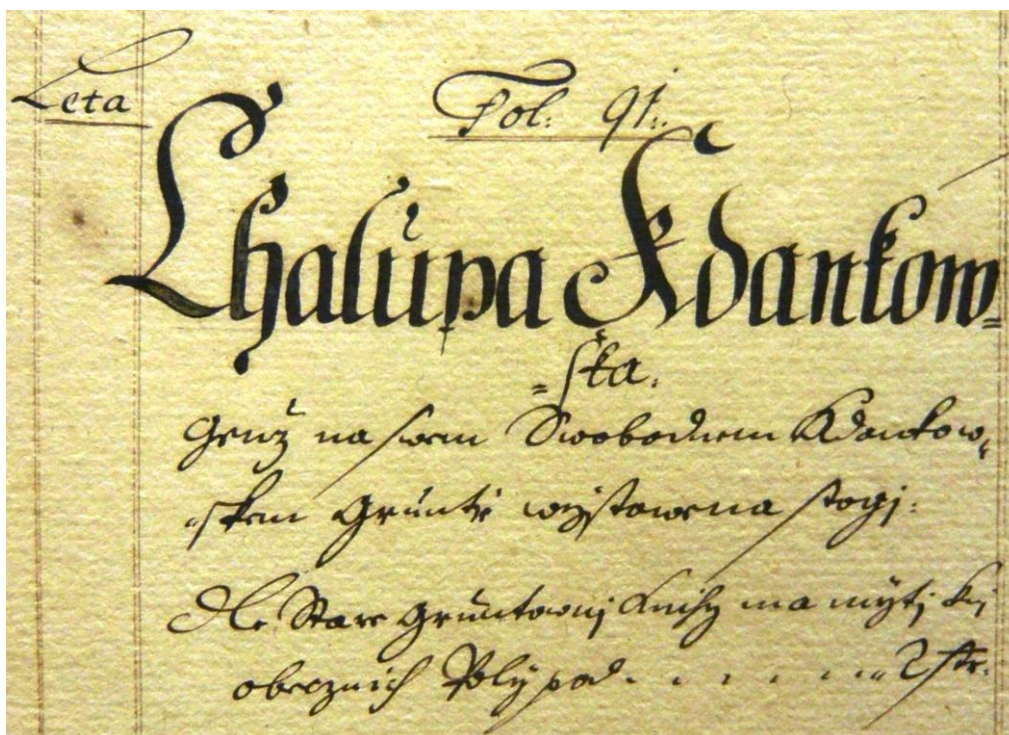 Leta
Fol: 91:
Chalupa Kdankow=
=ska.
Genž na swem Swobodnem Kdankow=
skem Gruntě wystawena stogj:
Dle Stare Gruntownj Knihy ma myti
obecznich Poly pod . . . . . 2 str.